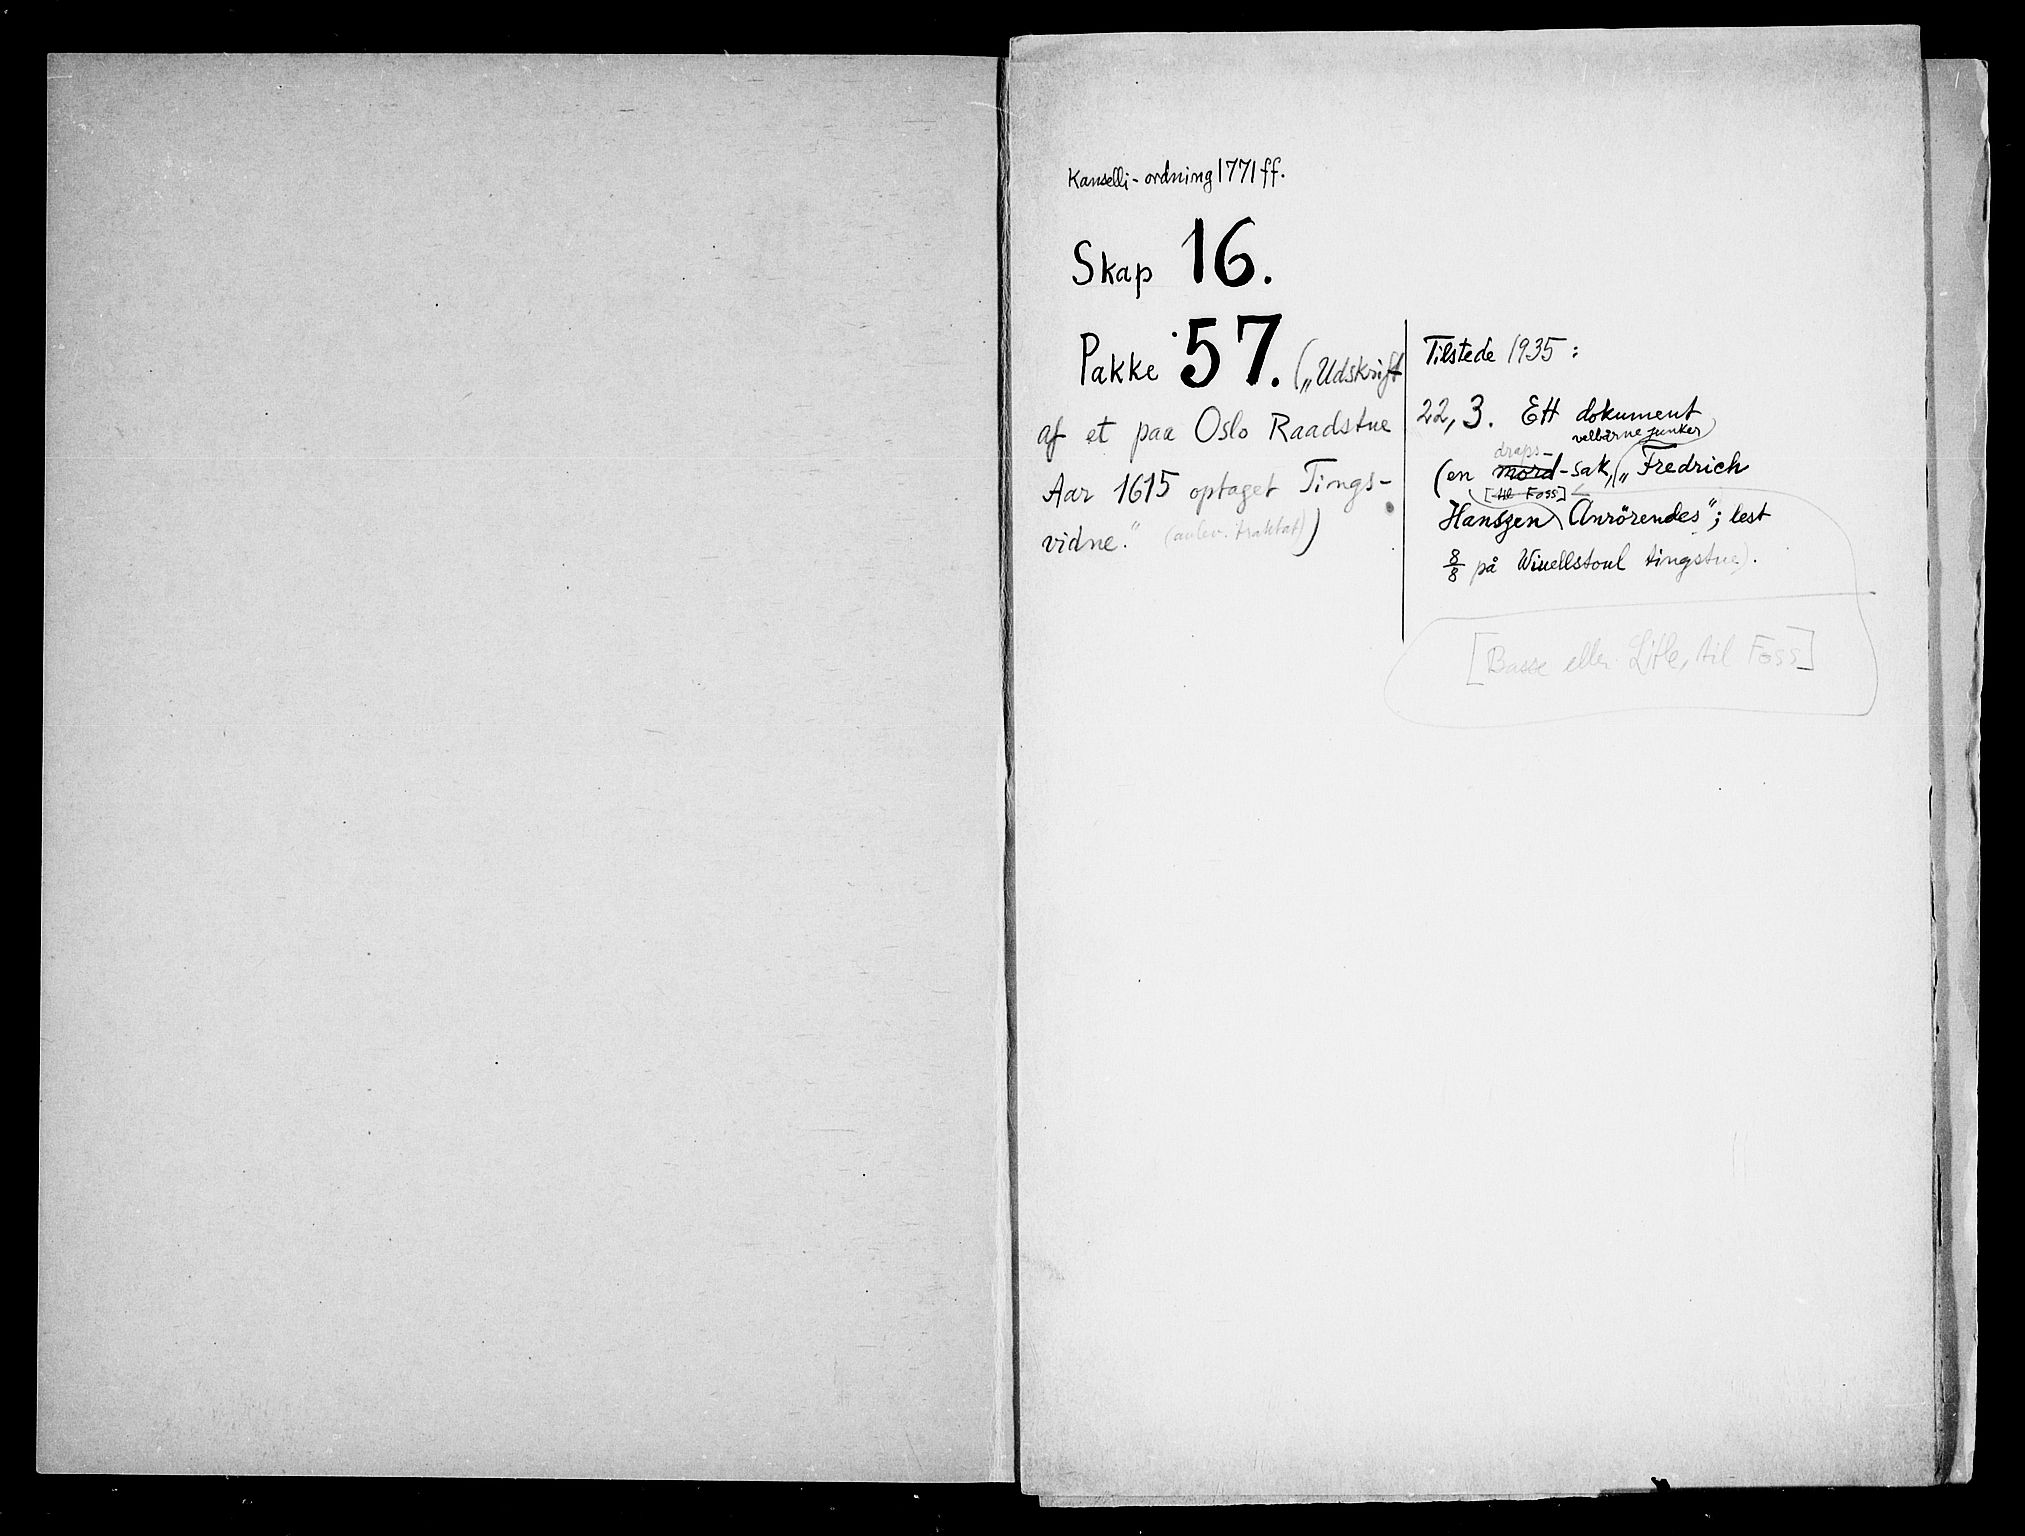 Kanselli-ordning 1771 ff.
Skap 16.
Pakke 57. („Udskrift
af et paa Oslo Raadstue
Aar 1615 optaget Tings-
vidne.")
Tilstede 1935:
22, 3. Ett dokument
velbårne junker
draps-
(en mord-sak, „Fredrich
[til Foss]
Hanszen Anrörendes"; lest
8/8 på Winellstoul tingstue).
[Basse eller Litle, til Foss]